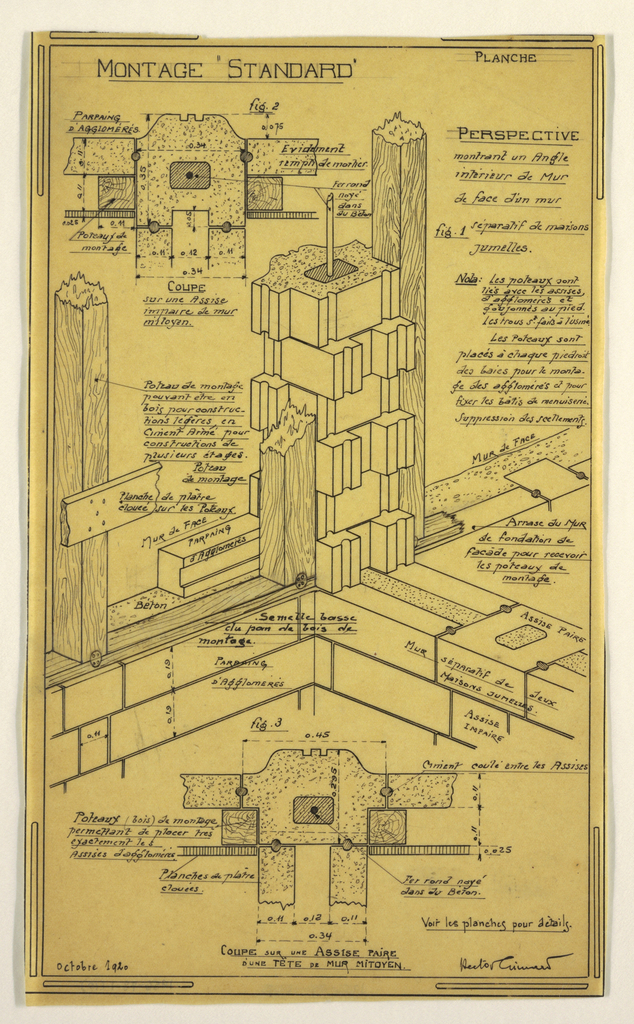 MONTAGE "STANDARD"
PLANCHE
fig. 2
PARPAING
D'AGGLOMÉRÉS
0.075
0.34
0.35
Evidement
rempli de mortier.
Fer rond
noyé
dans
du Béton
0.11
0.11
0.025
0.11
Poteaux de
montage
0.05
0.11
0.12
0.11
0.34
COUPE
sur une Assise
impaire de mur
mitoyen.
PERSPECTIVE
montrant un Angle
intérieur de Mur
de face d'un mur
fig. 1 séparatif de maisons
jumelles.
Nota: Les poteaux sont
liés avec les assises
d'agglomérés et
goujonnés au pied.
Les trous st faits à l'usine
Les Poteaux sont
placés à chaque piedroit
des baies pour le monta-
ge des agglomérés et pour
fixer les bâtis de menuiserie.
Suppression des scellements.
Poteau de montage
pouvant être en
bois pour construc-
tions légères en
Ciment Armé pour
constructions de
plusieurs étages.
Poteau
de montage
Planche de plâtre
clouée sur les Poteaux
MUR DE FACE
PARPAING
d'Agglomérés
Béton
MUR DE FACE
Arnase du MUR
de fondation de
façade pour recevoir
les poteaux de
montage.
Semelle basse
du pan de bois de
montage.
PARPAING
D'AGGLOMÉRÉS
0.19
0.19
0.11
ASSISE PAIRE
MUR séparatif de deux
MAISONS JUMELLES.
ASSISE
IMPAIRE
fig. 3
0.45
Ciment coulé entre les Assises
0.295
0.11
0.11
0.025
Poteaux (bois) de montage
permettant de placer très
exactement les
Assises d'agglomérés
Planches de plâtre
clouées.
Fer rond noyé
dans du Béton.
0.11
0.12
0.11
0.34
Voir les planches pour détails.
COUPE SUR UNE ASSISE PAIRE
D'UNE TÊTE DE MUR MITOYEN
Octobre 1920
Hector Guimard